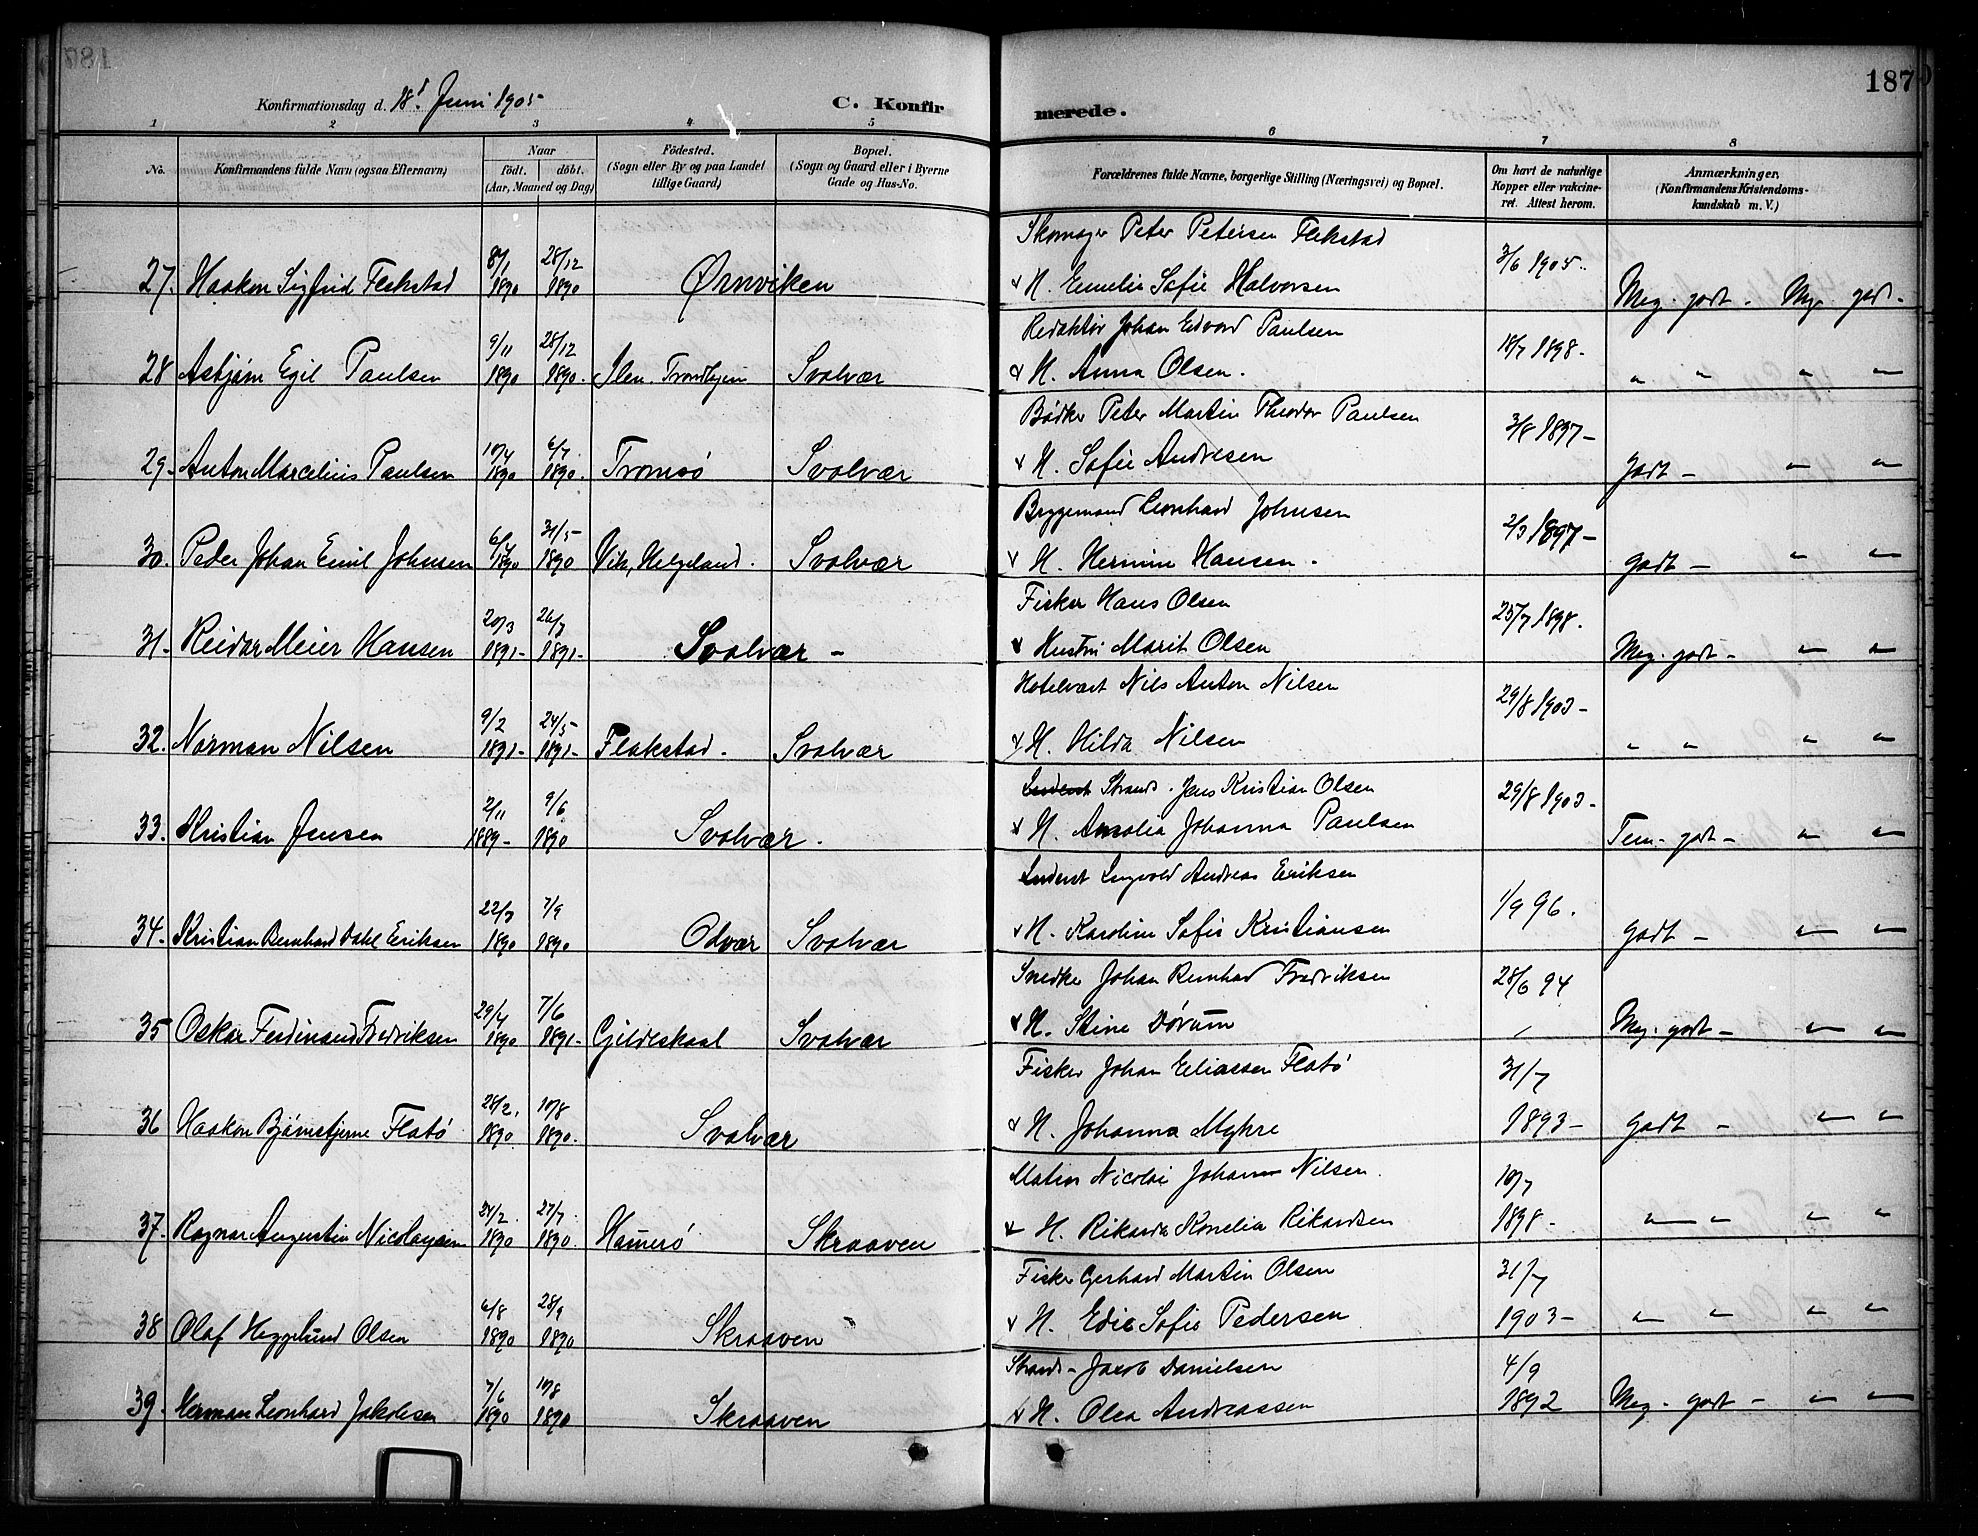 187
Konfirmationsdag d. 18d Juni 1905
C. Konfirmerede.
1 2 3 4 5 6 7 8
No.
Konfirmandens fulde Navn (ogsaa Efternavn)
Naar
født. døbt.
(Aar, Maaned og Dag)
Fødested.
(Sogn eller By og paa Landet
tillige Gaard)
Bopæl.
(Sogn og Gaard eller i Byerne
Gade og Hus-No.
Forældrenes fulde Navne, borgerlige Stilling (Næringsvei) og Bopæl.
Om havt de naturlige
Kopper eller vakcine-
ret. Attest herom.
Anmærkninger,
(Konfirmandens Kristendoms-
kundskab m. V.)
Skomager Peter Petersen Flekstad
8/1 28/12 3/6 1905.
27. Haakon Sigfrid Flekstad 1890 1890 Ørnviken & H. Emelie Sofie Halvorsen Meg. godt - Meg. godt.
Redaktør Johan Edvard Paulsen
9/11 28/12 18/7 1898.
28 Asbjørn Egil Paulsen 1890 1890. Ilen. Trondhjem Svolvær & H. Anna Olsen. " " " "
Bødker Peter Martin Theodor Paulsen
10/4 6/7 3/8 1897-
29. Anton Marcelius Paulsen 1890 1890. Tromsø Svolvær & H. Sofie Andresen godt - " "
Bryggemand Leonhard Johnsen
6/4 31/5 2/3 1897-
30. Peder Johan Emil Johnsen 1890 1890 Vik, Helgeland. Svolvær & H. Hermine Hansen. godt - " "
Fisker Hans Olsen
20/3 26/7 25/7 1898.
31. Reidar Meier Hansen 1891- 1891- Svolvær - & Hustru Marit Olsen Meg. godt - " "
Hotelvært Nils Anton Nilsen
9/2 24/5 29/8 1903-
32. Norman Nilsen 1891- 1891- Flakstad. Svolvær & H. Hilda Nilsen " " " "
Strands. Jens Kristian Olsen
2/11 9/6 29/8 1903-
33. Kristian Jensen 1889- 1890 Svolvær. & H. Amalia Johanna Paulsen Tem. godt - " "
Ingvold Andreas Eriksen
22/7 7/9 1/9 96.
34. Kristian Bernhard Dahl Eriksen 1890 1890 Odvær Svolvær & H. Karoline Sofie Kristiansen godt - " "
Snedker Johan Bernhard Fredriksen
29/4 7/6 28/6 94
35 Oskar Ferdinand Fredriksen 1890 1891- Gildeskaal Svolvær & H. Stine Dørum Meg. godt - " "
Fisker Johan Eliassen Flatø
28/2. 10/8 31/7
36 Haakon Bjørnstjerne Flatø 1890 1890. Svolvær & H. Johanna Myhre 1893- godt - " "
Matros Nicolai Johann Nilsen.
24/2. 27/7. 10/7
37. Ragnar Augustin Nicolaysen 1890 1890. Hamerø Skraaven & H. Rikarda Kornelia Rikardsen 1898- " " " "
Fisker Gerhard Martin Olsen
6/8 28/9 31/7
38 Olaf Hegglund Olsen 1890 1890 Skraaven & H. Edie Sofie Pedersen 1903- " " " "
Strands- Jacob Danielsen
7/6 10/8 4/9
39. Herman Leonhard Jakobsen 1890 1890 Skraaven & H. Olea Andreassen 1892 Meg. godt - " "